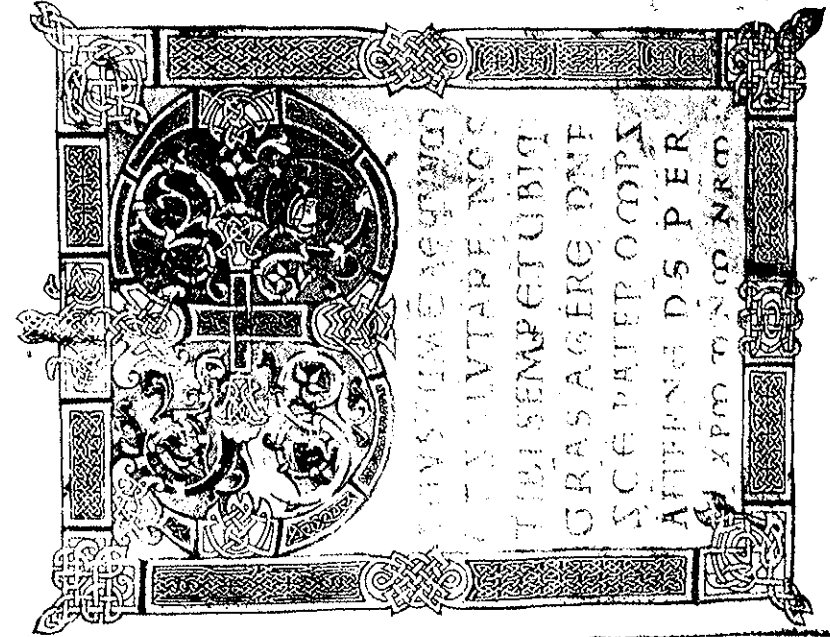 IVSTUM E AEQUUM
SALVTARE NOS
TIBI SEMP ET UBIQ
GRAS AGERE DNE
SCE PATER OMPS
AETERNE DS PER
XPM DNM NRM